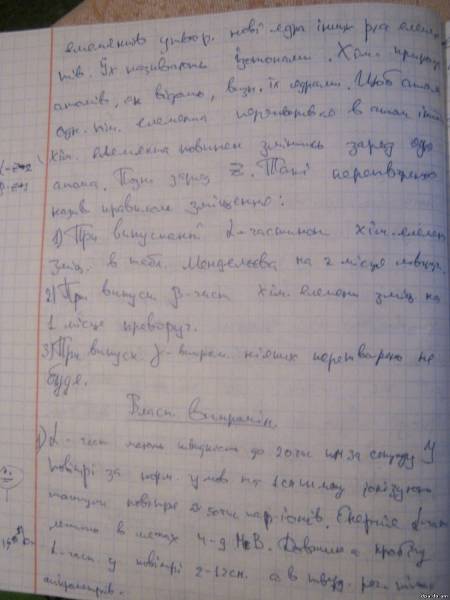 елементів утвор. нові ядра інших
тів. Їх називають ізотопами. Хім. природа
атомів, як відомо, визн. їх ядрами. Щоб атом
одн. хім. елемента перетворився в атом іншого
хім. елемента повинен змінитись заряд
атома. заряд Z. Такі перетворення
назив правилом зміщення:
1) При випусканні α-частинок хім. елемент
зміщ. в табл. Менделєєва на 2 місця ліворуч.
2) При випуск β-част хім. елемент зміщ. на
1 місце праворуч.
3) При випуск. γ-випром. ніяких перетворень не
буде.
Власт. випромін
1) α-част мають швидкість до 20 тис км за секунду У
повітрі за норм. умов на 1 см шляху іонізують
повітря 50 тис пар-іонів. Енергія α-част
в межах 4-9 МеВ. Довжина пробігу
α-част. у повітрі 2-12 см. а в тверд.
мікрометрів.
dpa.do.am